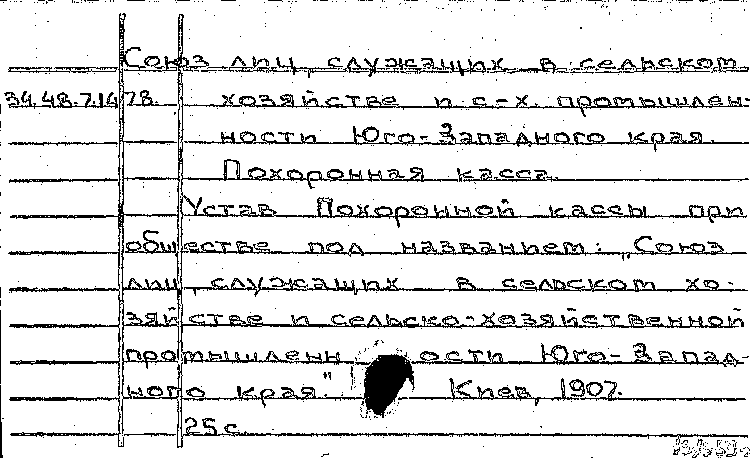 Союз лиц, служащих в сельском
34.48.7.1478. хозяйстве и с-х. промышлен-
ности Юго-Западного края.
Похоронная касса.
Устав Похоронной кассы при
обществе под названием: "Союз
лиц, служащих в сельском хо-
зяйстве и сельско-хозяйственной
промышленн ости Юго-Запад-
ного края." Киев, 1907.
25 с.